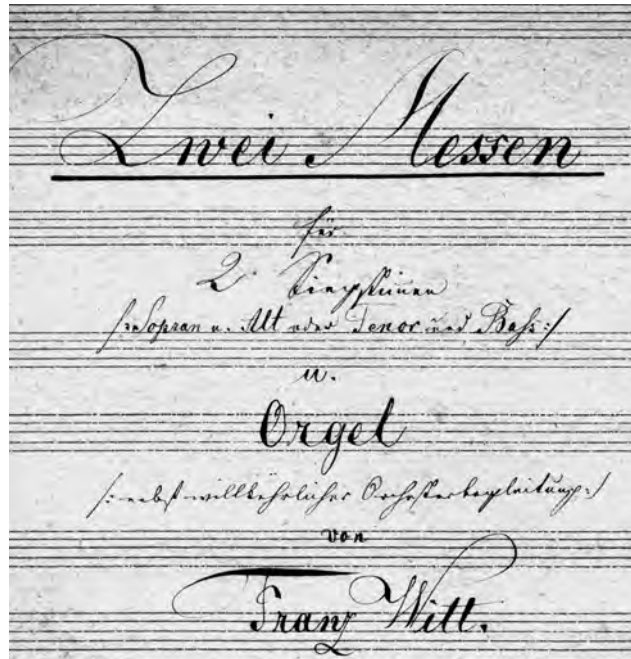 Zwei Messen
für
2 Singstimmen
/: Sopran u. Alt oder Tenor und Bass :/
u.
Orgel
/: nebst willkührlicher Orchesterbegleitung :/
von
Franz Witt.